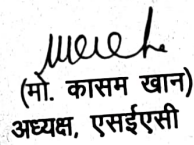 (मो. कासम खान)
अध्यक्ष, एसईएसी